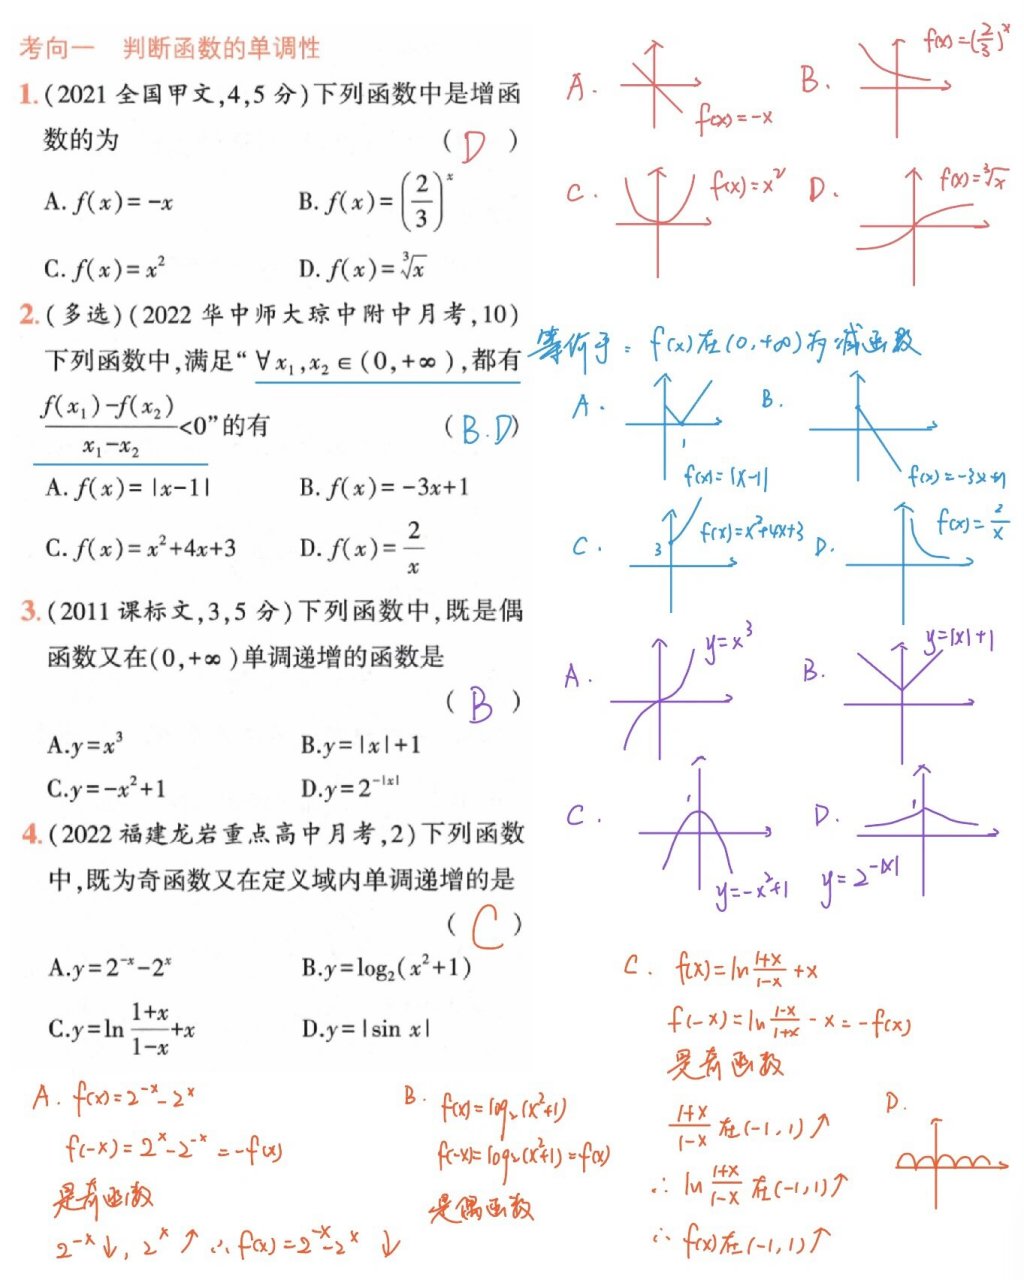 考向一 判断函数的单调性
1.(2021 全国甲文,4,5 分)下列函数中是增函
数的为 ( D )
A. f(x)=-x B. f(x)=(2/3)^x
C. f(x)=x² D. f(x)=∛x
2.(多选)(2022 华中师大琼中附中月考,10)
下列函数中,满足“∀x₁,x₂∈(0,+∞),都有
f(x₁)-f(x₂)/x₁-x₂<0”的有 ( B.D )
A. f(x)=|x-1| B. f(x)=-3x+1
C. f(x)=x²+4x+3 D. f(x)=2/x
3.(2011 课标文,3,5 分)下列函数中,既是偶
函数又在(0,+∞)单调递增的函数是
( B )
A.y=x³ B.y=|x|+1
C.y=-x²+1 D.y=2^-|x|
4.(2022 福建龙岩重点高中月考,2)下列函数
中,既为奇函数又在定义域内单调递增的是
( C )
A.y=2^-x-2^x B.y=log₂(x²+1)
C.y=ln 1+x/1-x+x D.y=|sin x|
A. f(x)=-x B. f(x)=(2/3)^x
C. f(x)=x² D. f(x)=∛x
等价于: f(x)在(0,+∞)为减函数
A. 1 f(x)=|x-1| B. f(x)=-3x+1
C. 3 f(x)=x²+4x+3 D. f(x)=2/x
A. y=x³ B. y=|x|+1
C. 1 y=-x²+1 D. 1 y=2^-|x|
A. f(x)=2^-x-2^x
f(-x)=2^x-2^-x=-f(x)
是奇函数
2^-x↓, 2^x↑ ∴f(x)=2^-x-2^x ↓
B. f(x)=log₂(x²+1)
f(-x)=log₂(x²+1)=f(x)
是偶函数
C. f(x)=ln 1+x/1-x+x
f(-x)=ln 1-x/1+x-x=-f(x)
是奇函数
1+x/1-x 在(-1,1)↑
∴ln 1+x/1-x 在(-1,1)↑
∴f(x)在(-1,1)↑
D.